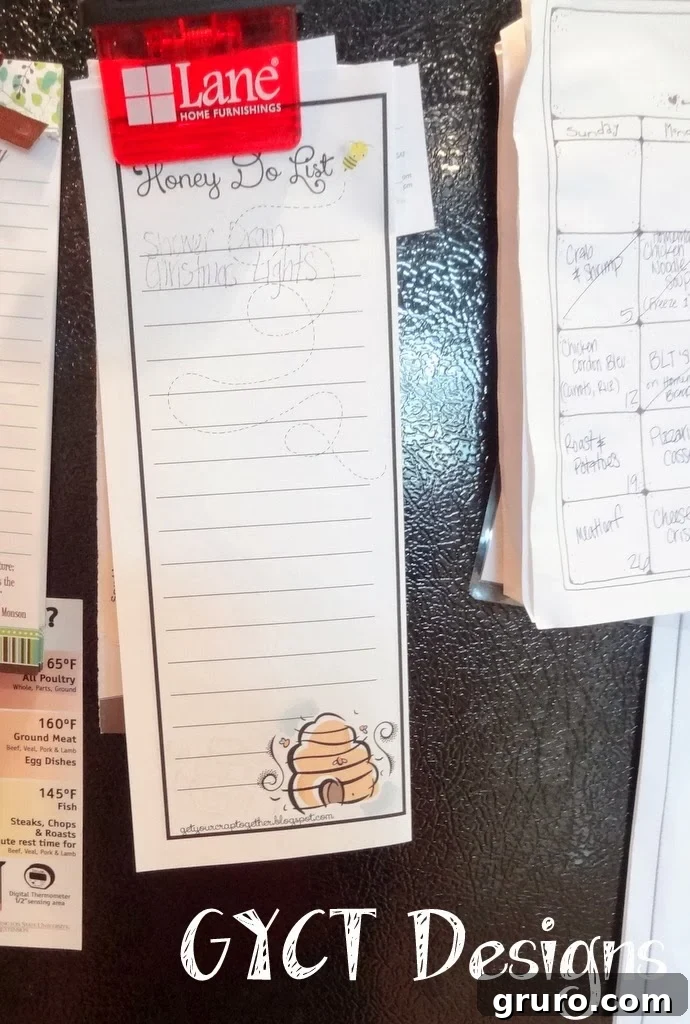 Lane®
HOME FURNISHINGS
Honey Do List
Shower Drain
Christmas Lights
getyourcraptogether.blogspot.com
Sunday
Crab
& Shrimp
5
Chicken
Noodle
Soup
Chicken
Cordon Bleu
(Carrots, Rice)
12
BLT's
on
Roast &
Potatoes
19
Meatloaf
26
Monson
?
65°F
All Poultry
Whole, Parts, Ground
160°F
Ground Meat
Beef, Veal, Pork & Lamb
Egg Dishes
145°F
Fish
Steaks, Chops
& Roasts
ute rest time for
Beef, Veal, Pork & Lamb
Digital Thermometer
1/2" sensing area
GYCT Designs
gruro.com